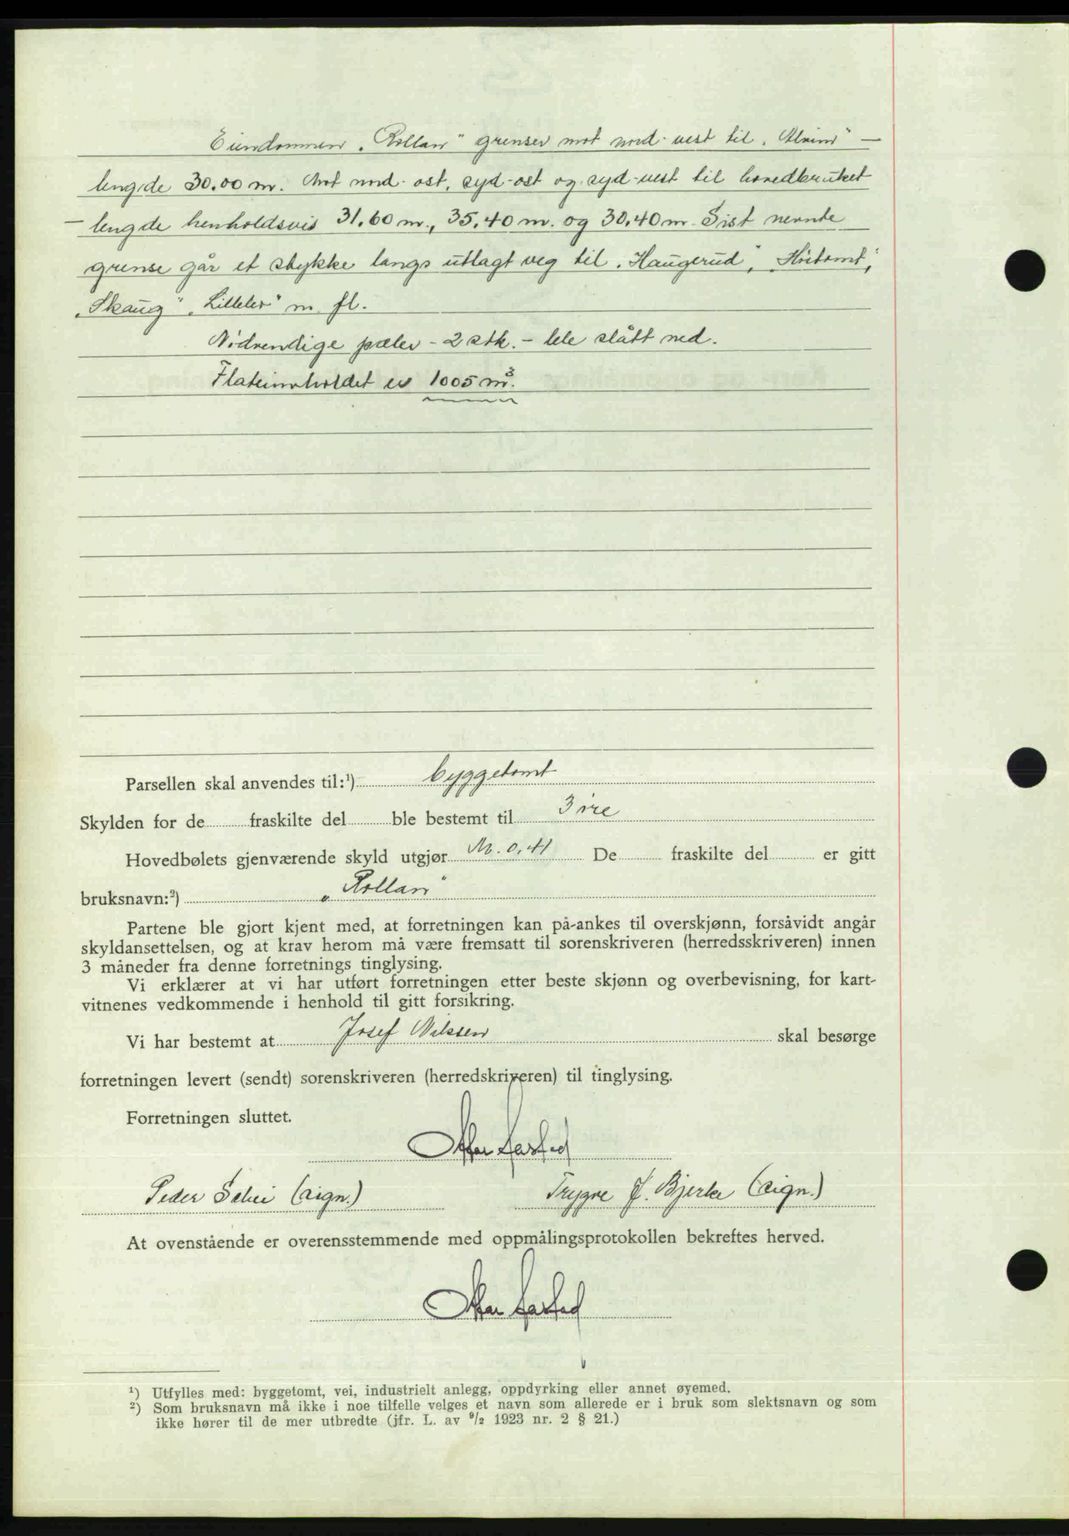 Eiendommen „Rollan" grenser mot nord-vest til
lengde 30.00 m. Mot nord-ost, syd-ost og syd-vest til hovedbruket
— lengde henholdsvis 31.60 m., 35.40 m. og 30.40 m. Sist nevnte
grense går et stykke langs utlagt veg til „Haugerud",
„Skaug" m. fl.
Nødvendige pæler - 2 stk. - ble slått ned.
Flateinnholdet er 1005 m³.
Parsellen skal anvendes til:¹) byggetomt
Skylden for de fraskilte del ble bestemt til 3 øre
Hovedbølets gjenværende skyld utgjør M. 0,41 De fraskilte del er gitt
bruksnavn:²) „Rollan"
Partene ble gjort kjent med, at forretningen kan på-ankes til overskjønn, forsåvidt angår
skyldansettelsen, og at krav herom må være fremsatt til sorenskriveren (herredsskriveren) innen
3 måneder fra denne forretnings tinglysing.
Vi erklærer at vi har utført forretningen etter beste skjønn og overbevisning, for kart-
vitnenes vedkommende i henhold til gitt forsikring.
Vi har bestemt at Josef Nilssen skal besørge
forretningen levert (sendt) sorenskriveren (herredskriveren) til tinglysing.
Forretningen sluttet.
Peder (sign.) Trygve J. Bjerke (sign.)
At ovenstående er overensstemmende med oppmålingsprotokollen bekreftes herved.
¹) Utfylles med: byggetomt, vei, industrielt anlegg, oppdyrking eller annet øyemed.
²) Som bruksnavn må ikke i noe tilfelle velges et navn som allerede er i bruk som slektsnavn og som
ikke hører til de mer utbredte (jfr. L. av ⁹/₂ 1923 nr. 2 § 21.)